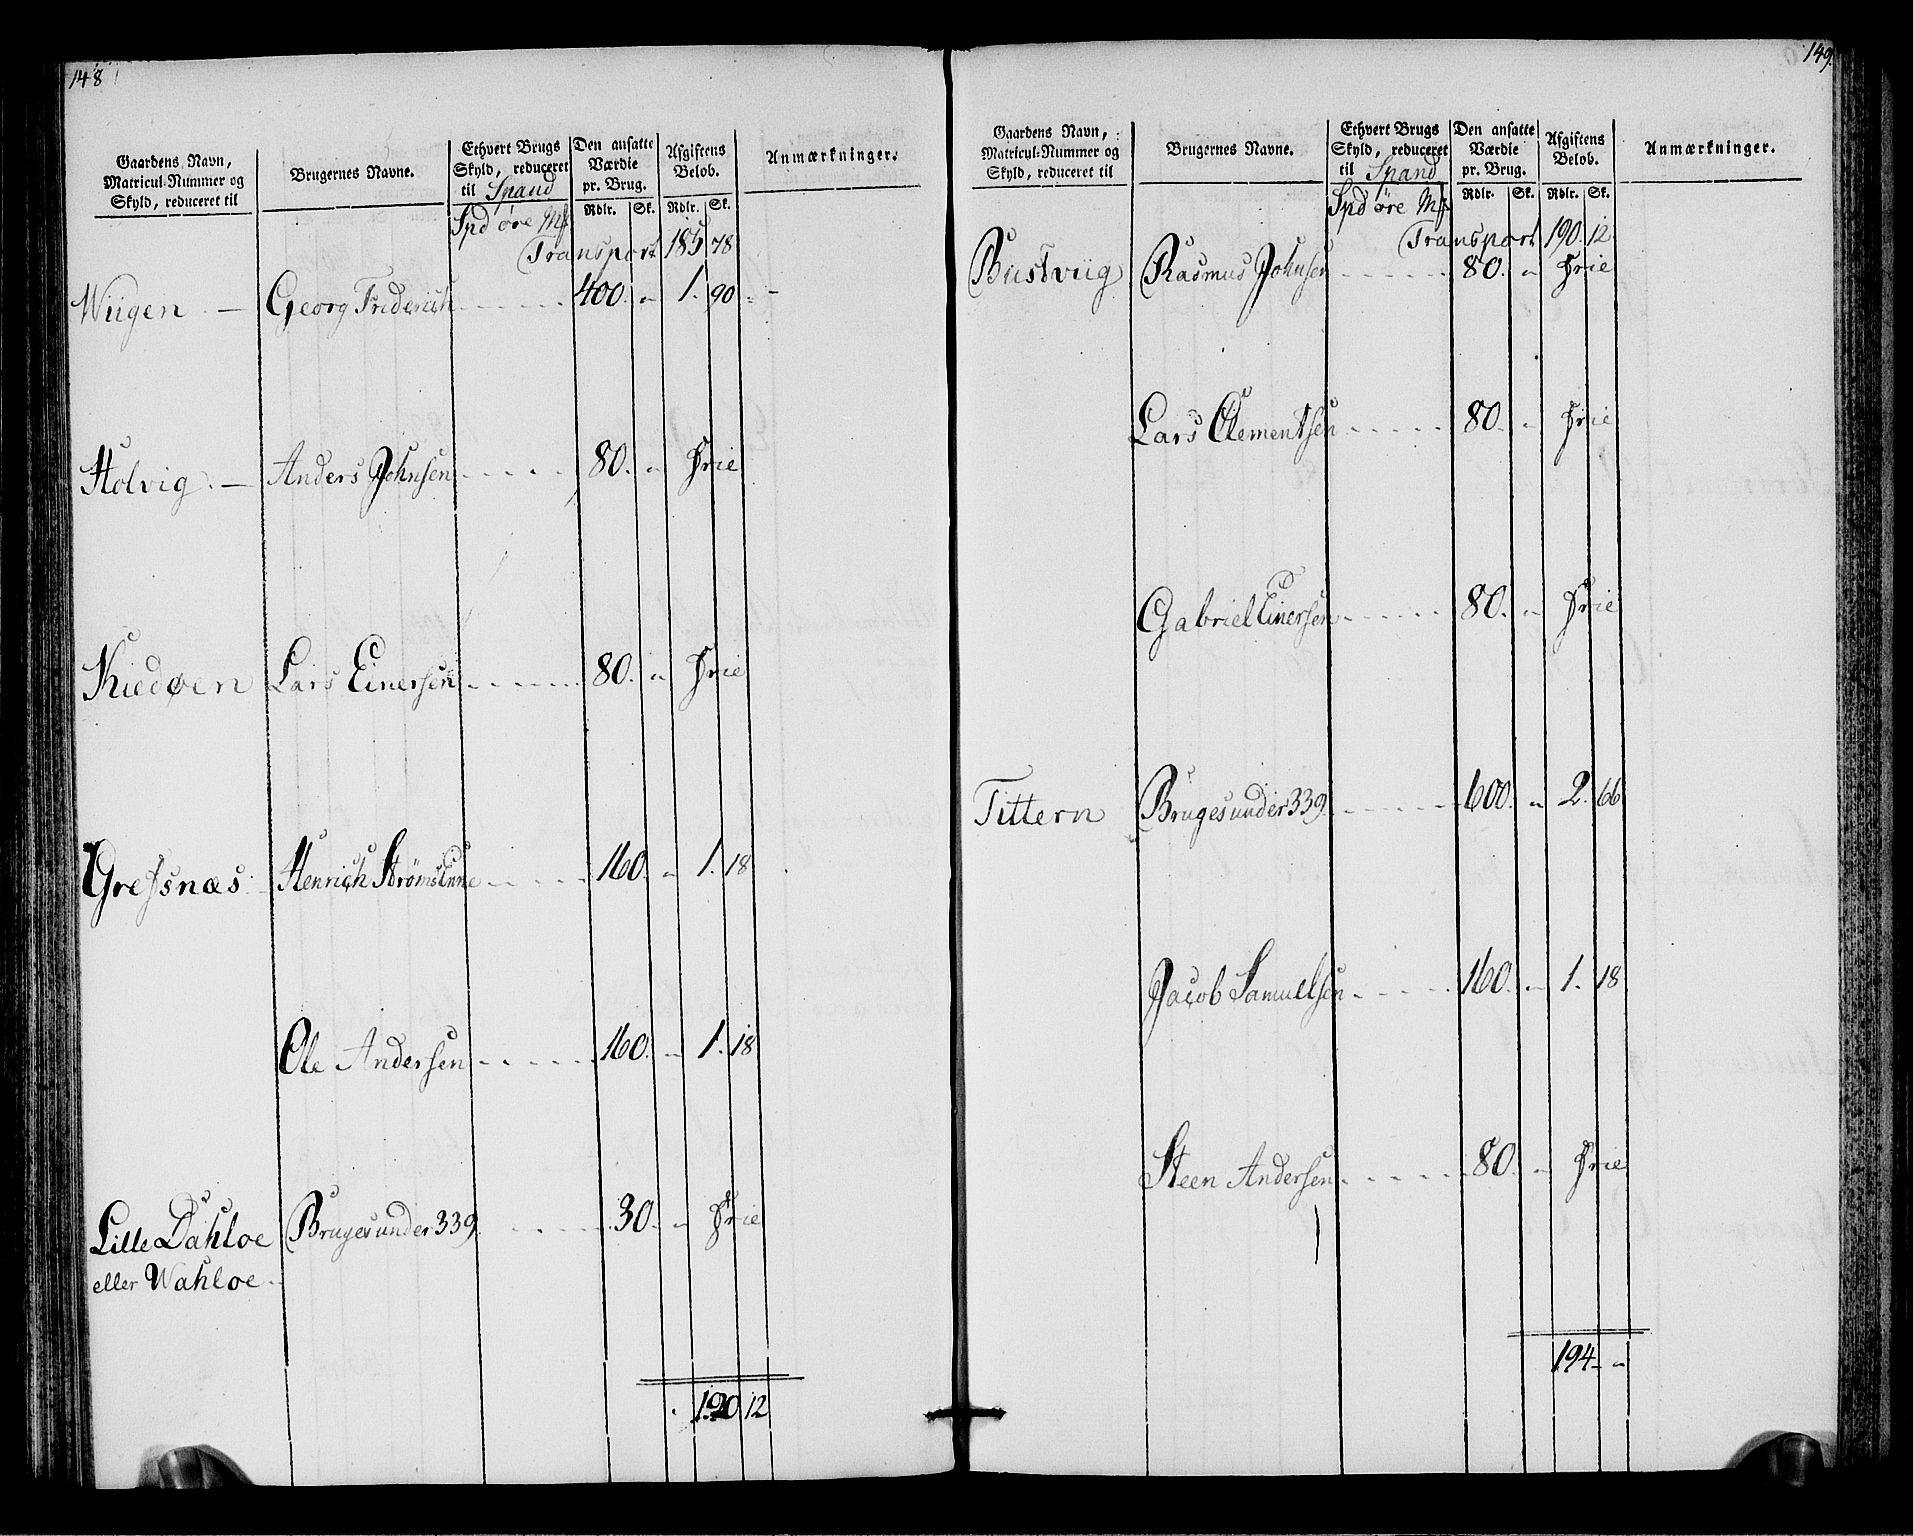 148
Gaardens Navn, Matricul-Nummer og Skyld, reduceret til
Brugernes Navne.
Ethvert Brugs Skyld, reduceret til Spand
Den ansatte Værdie pr. Brug.
Afgiftens Beløb.
Anmærkninger.
Rdlr. Sk. Rdlr. Sk.
Spd øre Mf
Transport 185 78
Wiigen — Georg Friderich 400. " 1. 90
Holvig. — Anders Johnsen 80. " Frie
Kiedøen Lars Einersen 80. " Frie
Grefsnæs Henrich Strømslune 160. " 1. 18
Ole Andersen 160. " 1. 18
Lille Dahloe Bruges under 339. 30. " Frie
eller Wahloe
190 12
149.
Gaardens Navn, Matricul-Nummer og Skyld, reduceret til
Brugernes Navne.
Ethvert Brugs Skyld, reduceret til Spand
Den ansatte Værdie pr. Brug.
Afgiftens Beløb.
Anmærkninger.
Rdlr. Sk. Rdlr. Sk.
Spd øre Mf
Transport 190. 12
Bustviig Rasmus Johnsen 80. " Frie
Lars Clementsen 80. " Frie
Gabriel Einersen 80. " Frie
Tittern Bruges under 339. 600. " 2. 66
Jacob Samuelsen 160. " 1. 18
Steen Andersen 80. " Frie
194 "